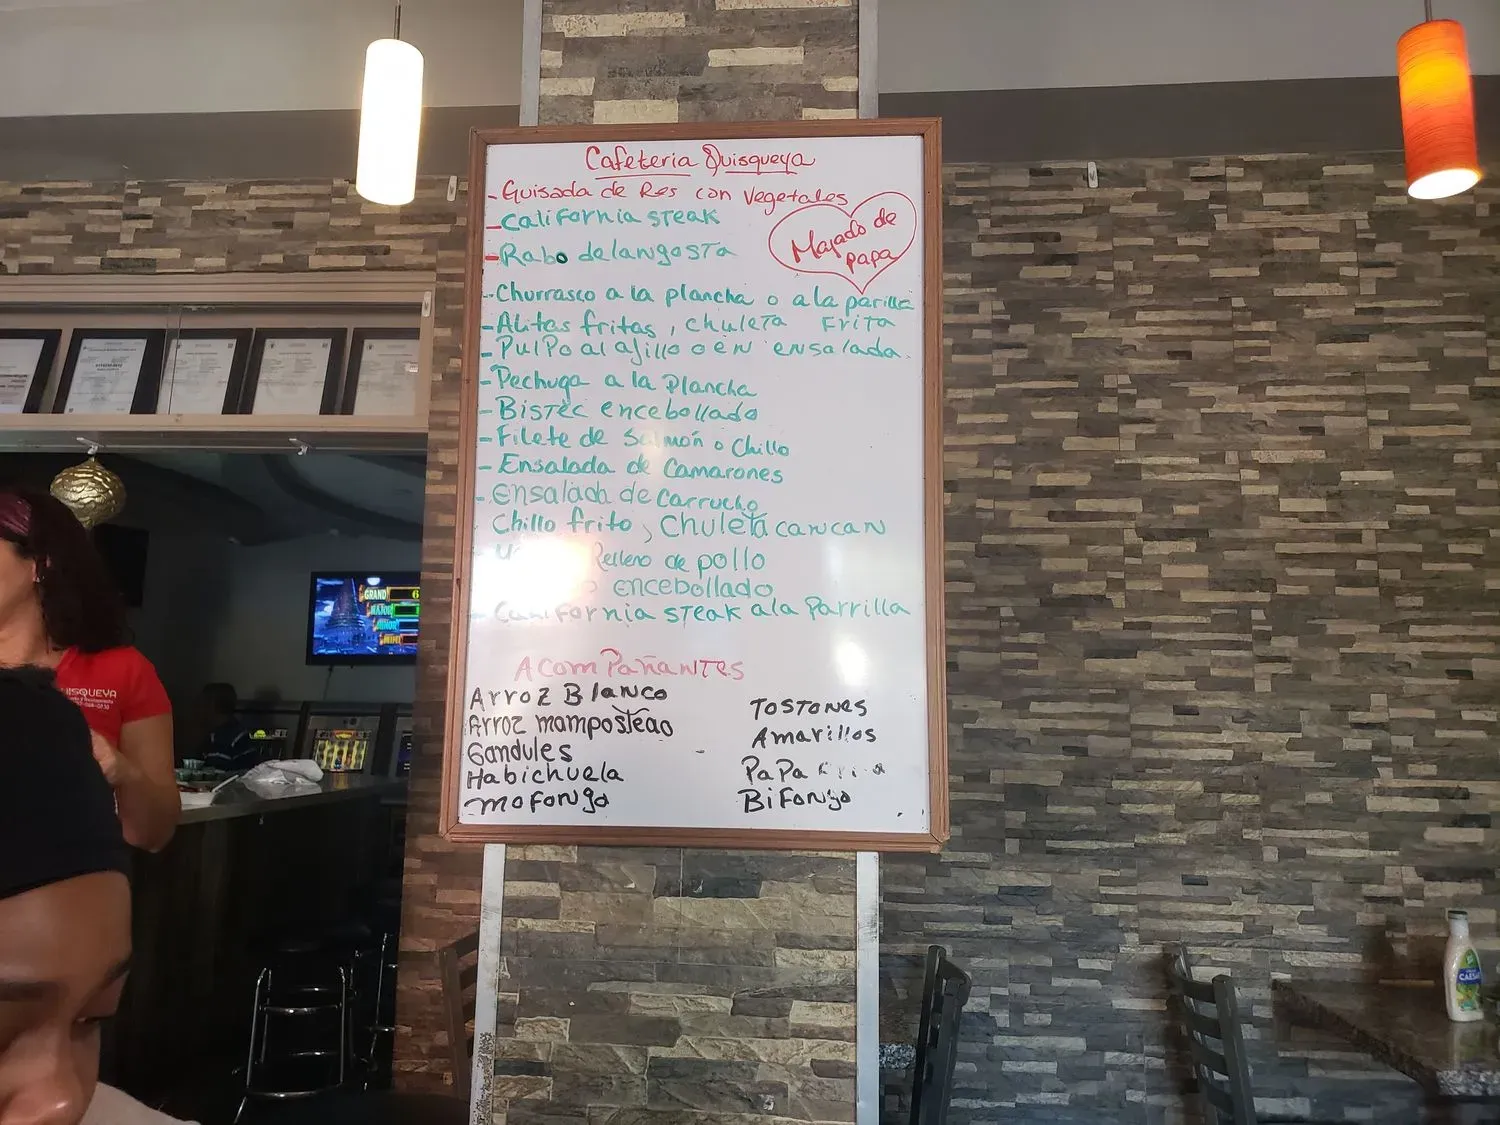 Cafeteria Quisqueya
- Guisada de Res con vegetales
- California steak
Majado de
papa
- Rabo de langosta
- Churrasco a la plancha o a la parilla
- Alitas fritas, chuleta frita
- Pulpo al ajillo o en ensalada.
- Pechuga a la plancha
- Bistec encebollado
- Filete de Salmón o Chillo
- Ensalada de Camarones
- Ensalada de Carrucho
Chillo frito, Chuleta can can
Relleno de pollo
encebollado
- California steak a la Parrilla
Acompañantes
Arroz Blanco
Arroz mamposteao
Gandules
Habichuela
mofongo
Tostones
Amarillos
Papa
Bifongo
GRAND
MAJOR
MINOR
MINI
UISQUEYA
CAESAR